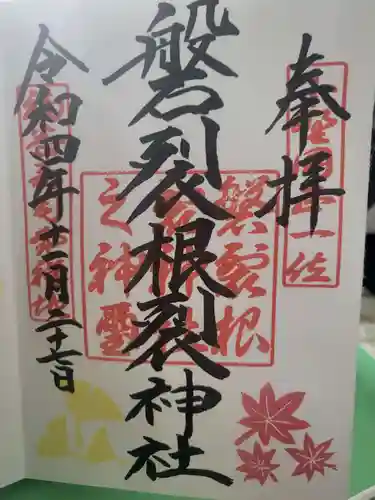 奉拝
磐裂根裂神社
令和四年十一月二十七日
正一位
磐裂根
裂神社
之神璽